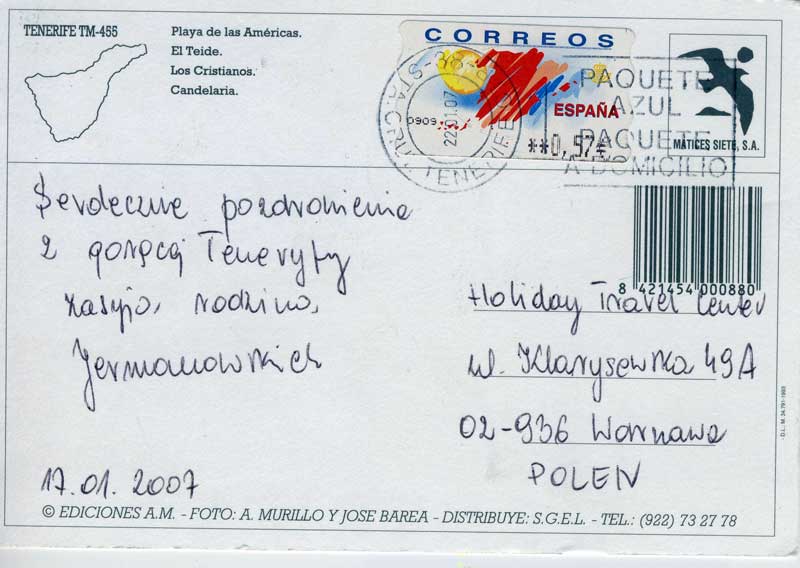 TENERIFE TM-455
Playa de las Américas.
El Teide.
Los Cristianos.
Candelaria.
CORREOS
ESPAÑA
**0,57€
0909
22.01.07
STA.CRUZ TENERIFE
PAQUETE
AZUL
PAQUETE
A DOMICILIO
MATICES SIETE, S.A.
Serdeczne pozdrowienia
z gorącej Teneryfy
zasyła rodzina
Jermanowskich
17.01.2007
8 421454 000880
Holiday Travel Center
ul. Klarysewska 49A
02-936 Warszawa
POLEN
D.L. M. 34.791-1993
© EDICIONES A.M. - FOTO: A. MURILLO Y JOSE BAREA - DISTRIBUYE: S.G.E.L. - TEL.: (922) 73 27 78